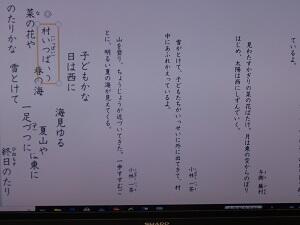 ているよ。
見わたすかぎりの菜の花ばたけ。月は東の空からのぼり
はじめ、太陽は西にしずんでいく。
与謝 蕪村
雪がとけて、子どもたちがいっせいに外に出てきて、村
中にあふれかえっているよ。
小林 一茶
山を登り、ちょうじょうが近づいてきた。一歩すすむご
とに、明るい夏の海が見えてくる。
小林 一茶
子どもかな
日は西に
海見ゆる
菜の花や
村いっぱいの
春の海
夏山や
一足づつに
月は東に
終日のたり
のたりかな
雪とけて
SHARP